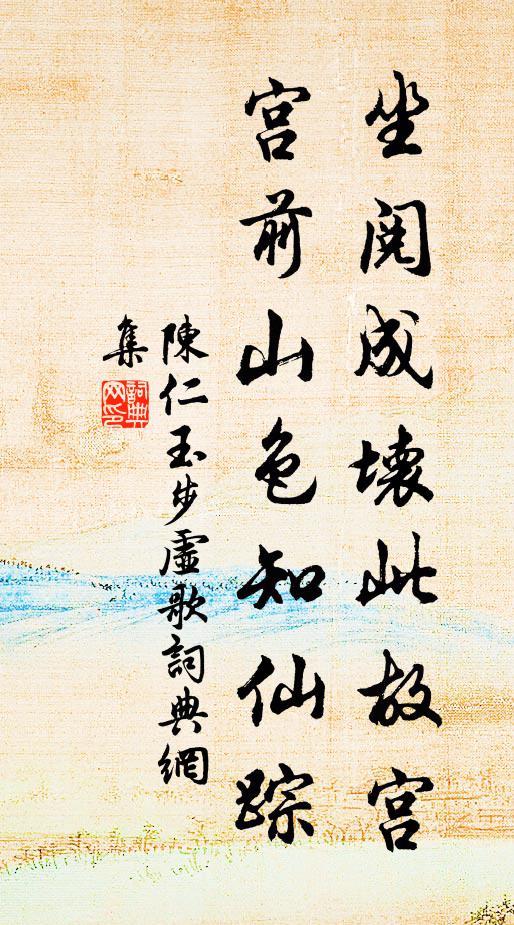 坐阅成壞此故宫
宫前山色知仙踪
陳仁玉步虛歌詞典網
集
詞典
网印